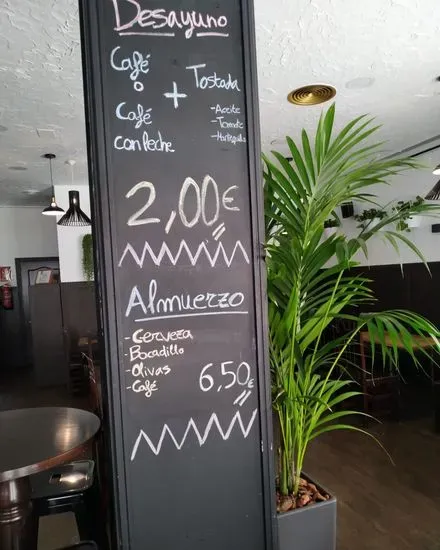 Desayuno
Café
o
Café
con leche
+
Tostada
-Aceite
-Tomate
-Mantequilla
2,00€
Almuerzo
-Cerveza
-Bocadillo
-Olivas
-Café
6,50€